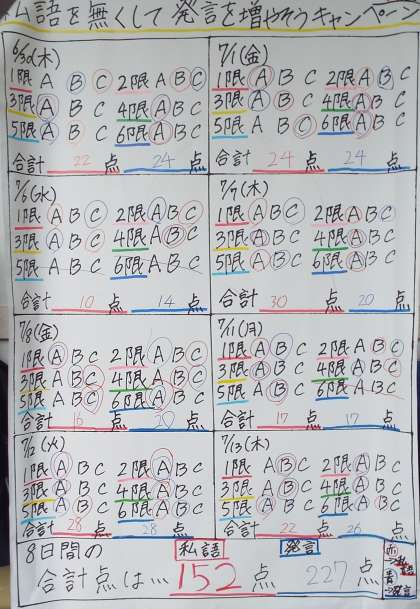 私語を無くして発言を増やそうキャンペーン
6/30(木)
1限 A B C 2限 A B C
3限 A B C 4限 A B C
5限 A B C 6限 A B C
合計 22 点 24 点
7/1(金)
1限 A B C 2限 A B C
3限 A B C 4限 A B C
5限 A B C 6限 A B C
合計 24 点 24 点
7/6(水)
1限 A B C 2限 A B C
3限 A B C 4限 A B C
5限 A B C 6限 A B C
合計 10 点 14 点
7/7(木)
1限 A B C 2限 A B C
3限 A B C 4限 A B C
5限 A B C 6限 A B C
合計 30 点 20 点
7/8(金)
1限 A B C 2限 A B C
3限 A B C 4限 A B C
5限 A B C 6限 A B C
合計 16 点 20 点
7/11(月)
1限 A B C 2限 A B C
3限 A B C 4限 A B C
5限 A B C 6限 A B C
合計 17 点 17 点
7/12(火)
1限 A B C 2限 A B C
3限 A B C 4限 A B C
5限 A B C 6限 A B C
合計 28 点 28 点
7/13(木)
1限 A B C 2限 A B C
3限 A B C 4限 A B C
5限 A B C 6限 A B C
合計 22 点 26 点
8日間の 私語 発言
合計点は… 152 点 227 点
赤→私語
青→発言